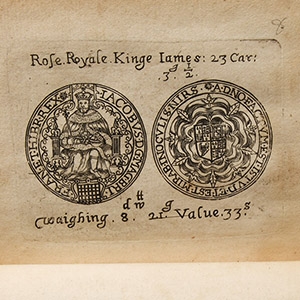 Rose. Royale. Kinge Iames: 23 Car:
3 g ½.
IACOBVS D G MAG BRIT FRAN ET HIB REX
A DNO FACTVM EST ISTVD ET EST MIRAB IN OCVL NRS
Waighing. 8. dwtt 21. g Value. 33s.